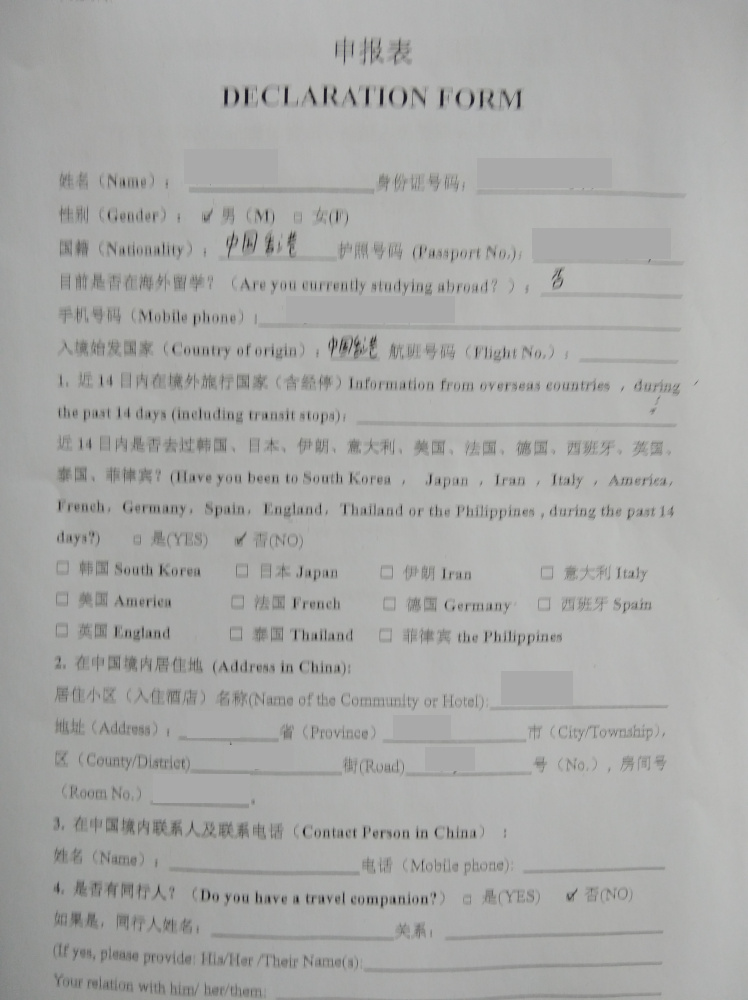 申报表
DECLARATION FORM
姓名（Name）： 身份证号码：
性别（Gender）： ✓ 男（M） □ 女(F)
国籍（Nationality）：中国香港 护照号码 (Passport No.)：
目前是否在海外留学？（Are you currently studying abroad？）：否
手机号码（Mobile phone）：
入境始发国家（Country of origin）：中国香港 航班号码（Flight No.）：
1. 近 14 日内在境外旅行国家（含经停）Information from overseas countries ，during
the past 14 days (including transit stops)：
近 14 日内是否去过韩国、日本、伊朗、意大利、美国、法国、德国、西班牙、英国、
泰国、菲律宾？(Have you been to South Korea ， Japan ，Iran ，Italy ，America，
French，Germany，Spain，England，Thailand or the Philippines , during the past 14
days?) □ 是(YES) ✓ 否(NO)
□ 韩国 South Korea □ 日本 Japan □ 伊朗 Iran □ 意大利 Italy
□ 美国 America □ 法国 French □ 德国 Germany □ 西班牙 Spain
□ 英国 England □ 泰国 Thailand □ 菲律宾 the Philippines
2. 在中国境内居住地 (Address in China):
居住小区（入住酒店）名称(Name of the Community or Hotel):
地址（Address）： 省（Province） 市（City/Township），
区（County/District) 街(Road) 号（No.），房间号
（Room No.） 。
3. 在中国境内联系人及联系电话（Contact Person in China）：
姓名（Name）： 电话（Mobile phone):
4. 是否有同行人？（Do you have a travel companion?）□ 是(YES) ✓ 否(NO)
如果是，同行人姓名： 关系：
(If yes, please provide: His/Her /Their Name(s):
Your relation with him/ her/them: